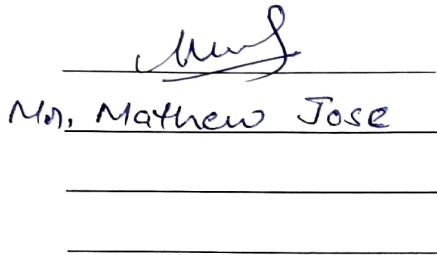 Mr. Mathew Jose